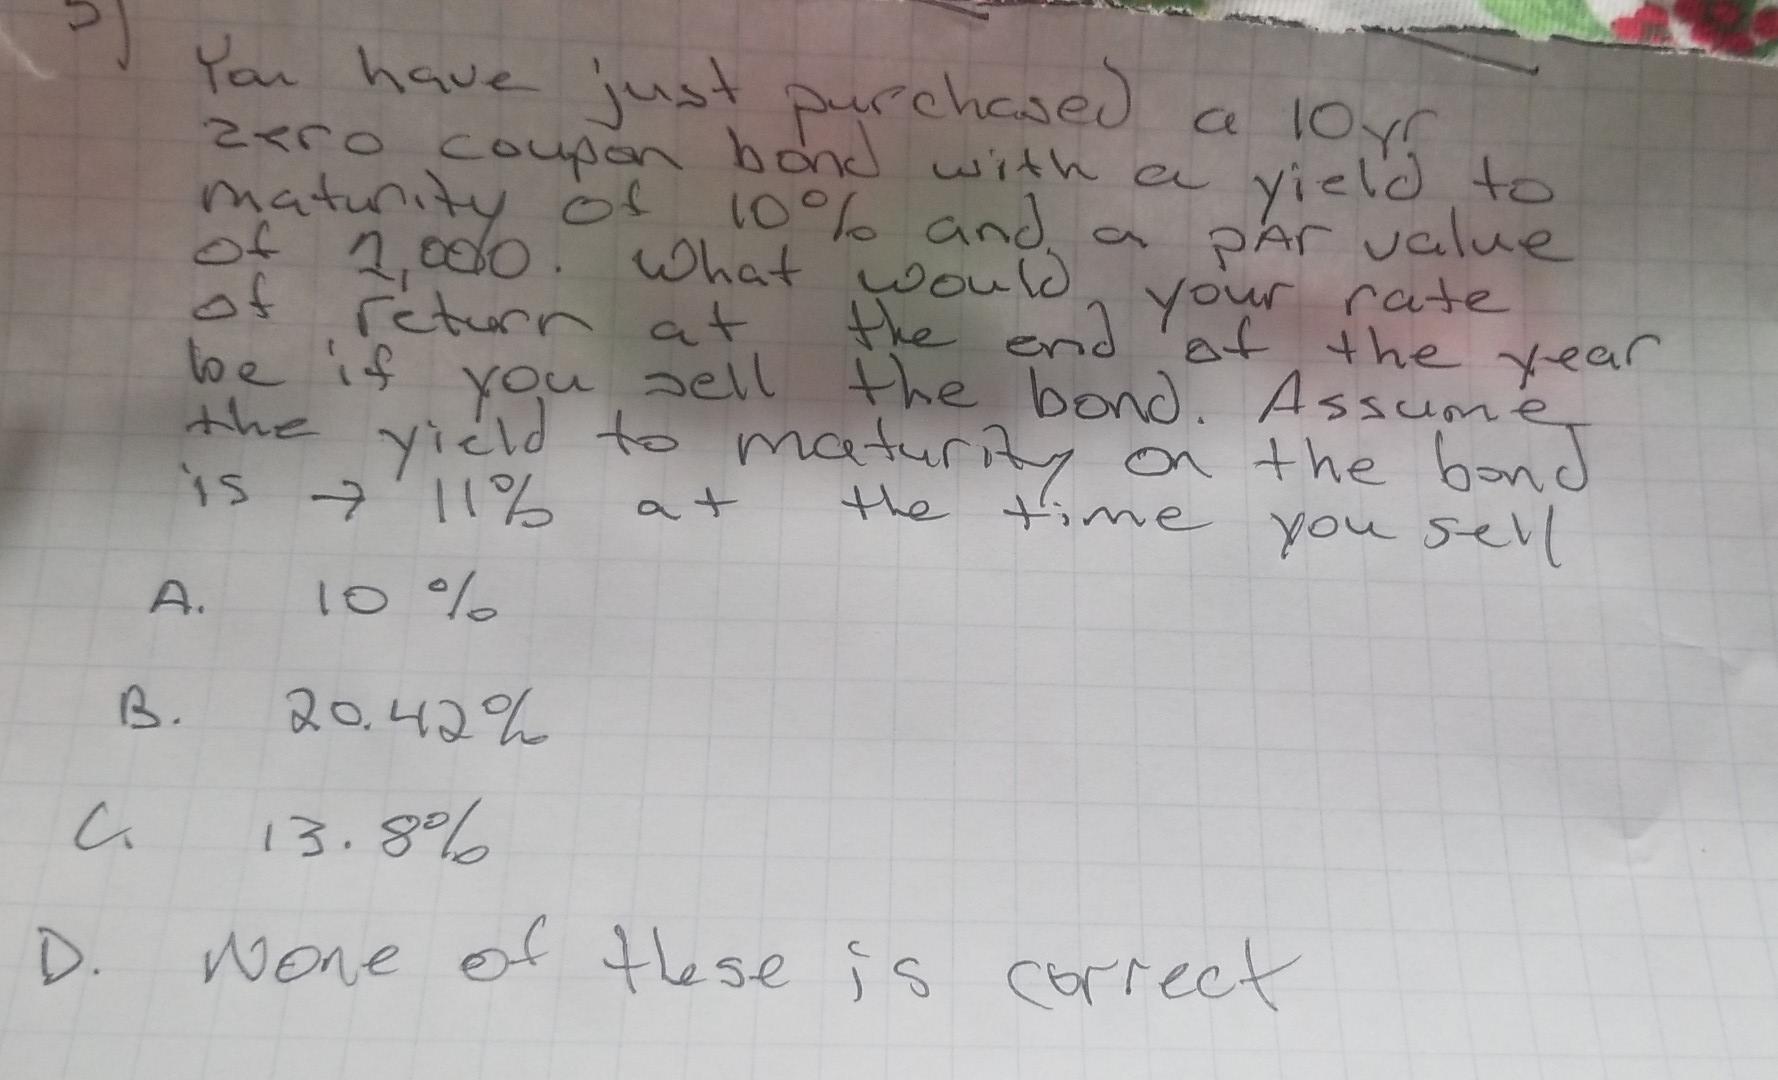 5)
You have just purchased a 10yr
zero coupon bond with a yield to
maturity of 10% and a pAr value
of 2,000. What would your rate
of return at the end of the year
be if you sell the bond. Assume
the yield to maturity on the bond
is → 11% at the time you sell
A. 10%
B. 20.42%
C. 13.8%
D. None of these is correct